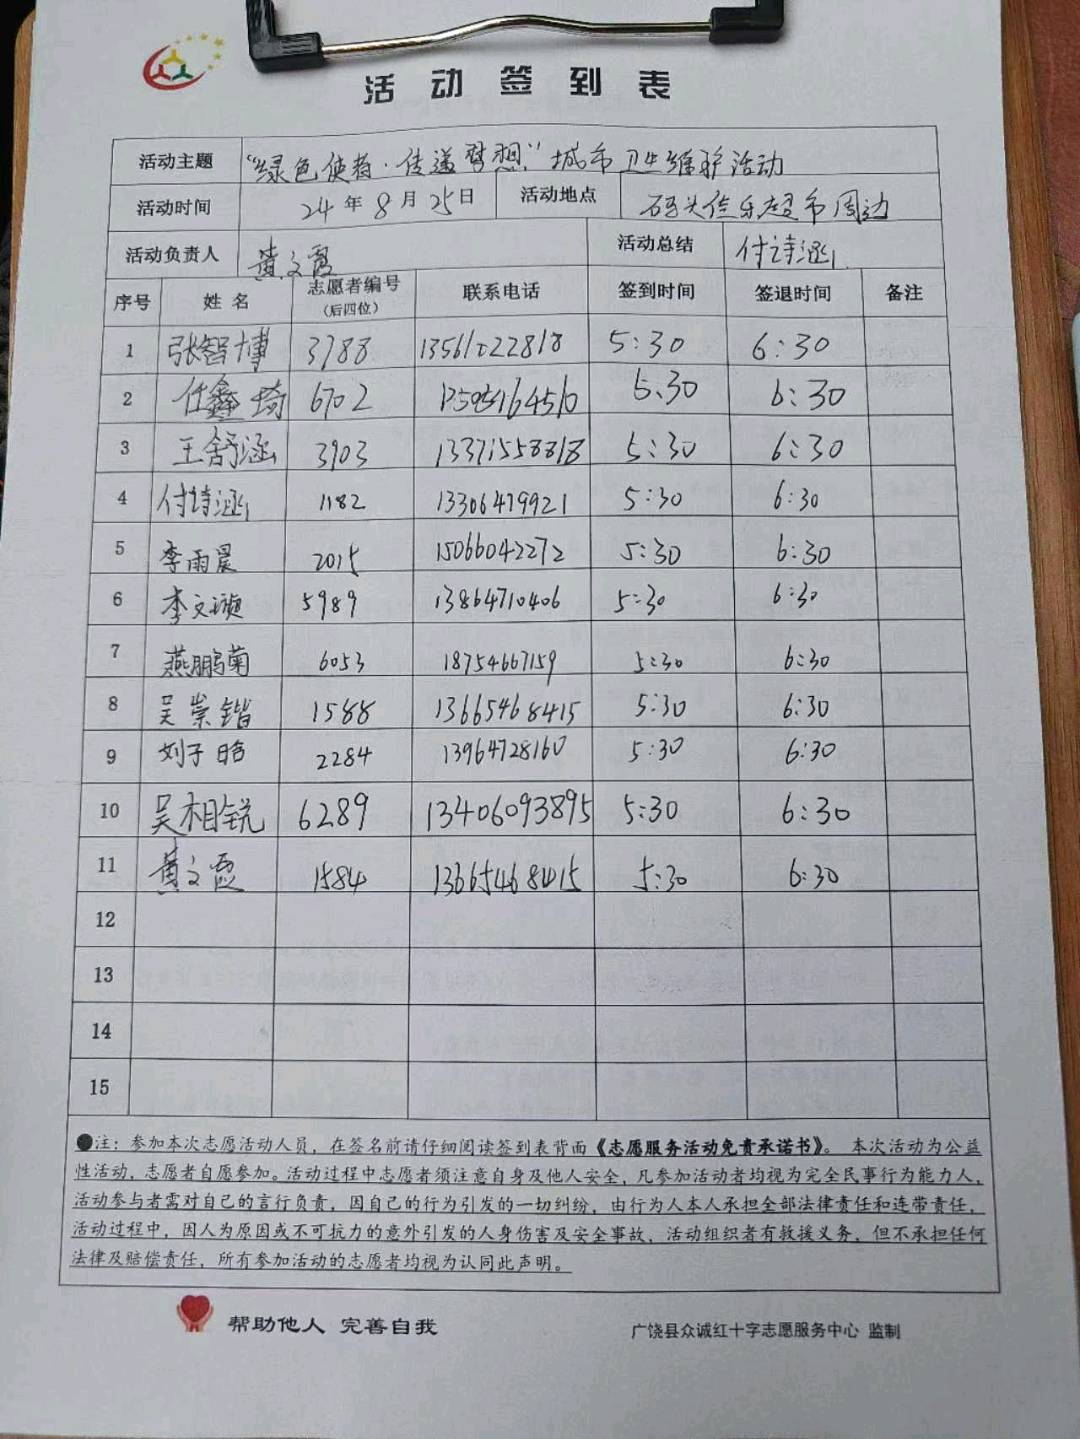 活动签到表
活动主题 "绿色使者·传递梦想" 城市卫生维护活动
活动时间 24年8月25日 活动地点 码头佳乐超市周边
活动负责人 黄文霞 活动总结 付诗涵
序号 姓名 志愿者编号（后四位） 联系电话 签到时间 签退时间 备注
1 张智博 3788 13561022818 5:30 6:30
2 任鑫琦 6702 5.30 6:30
3 王舒涵 3903 13371558818 5:30 6:30
4 付诗涵 1182 13306479921 5:30 6:30
5 李雨晨 2015 15066042272 5:30 6:30
6 李文璇 5989 13864710406 5:30 6:30
7 燕鹏菊 6053 18754667159 5:30 6:30
8 吴崇锴 1588 13665468415 5:30 6:30
9 刘子晗 2284 13964728160 5:30 6:30
10 吴相锐 6289 13406093895 5:30 6:30
11 黄文霞 1584 13665468415 5:30 6:30
12
13
14
15
●注：参加本次志愿活动人员，在签名前请仔细阅读签到表背面《志愿服务活动免责承诺书》。 本次活动为公益
性活动，志愿者自愿参加。活动过程中志愿者须注意自身及他人安全，凡参加活动者均视为完全民事行为能力人，
活动参与者需对自己的言行负责，因自己的行为引发的一切纠纷，由行为人本人承担全部法律责任和连带责任，
活动过程中，因人为原因或不可抗力的意外引发的人身伤害及安全事故，活动组织者有救援义务，但不承担任何
法律及赔偿责任，所有参加活动的志愿者均视为认同此声明。
帮助他人 完善自我 广饶县众诚红十字志愿服务中心 监制